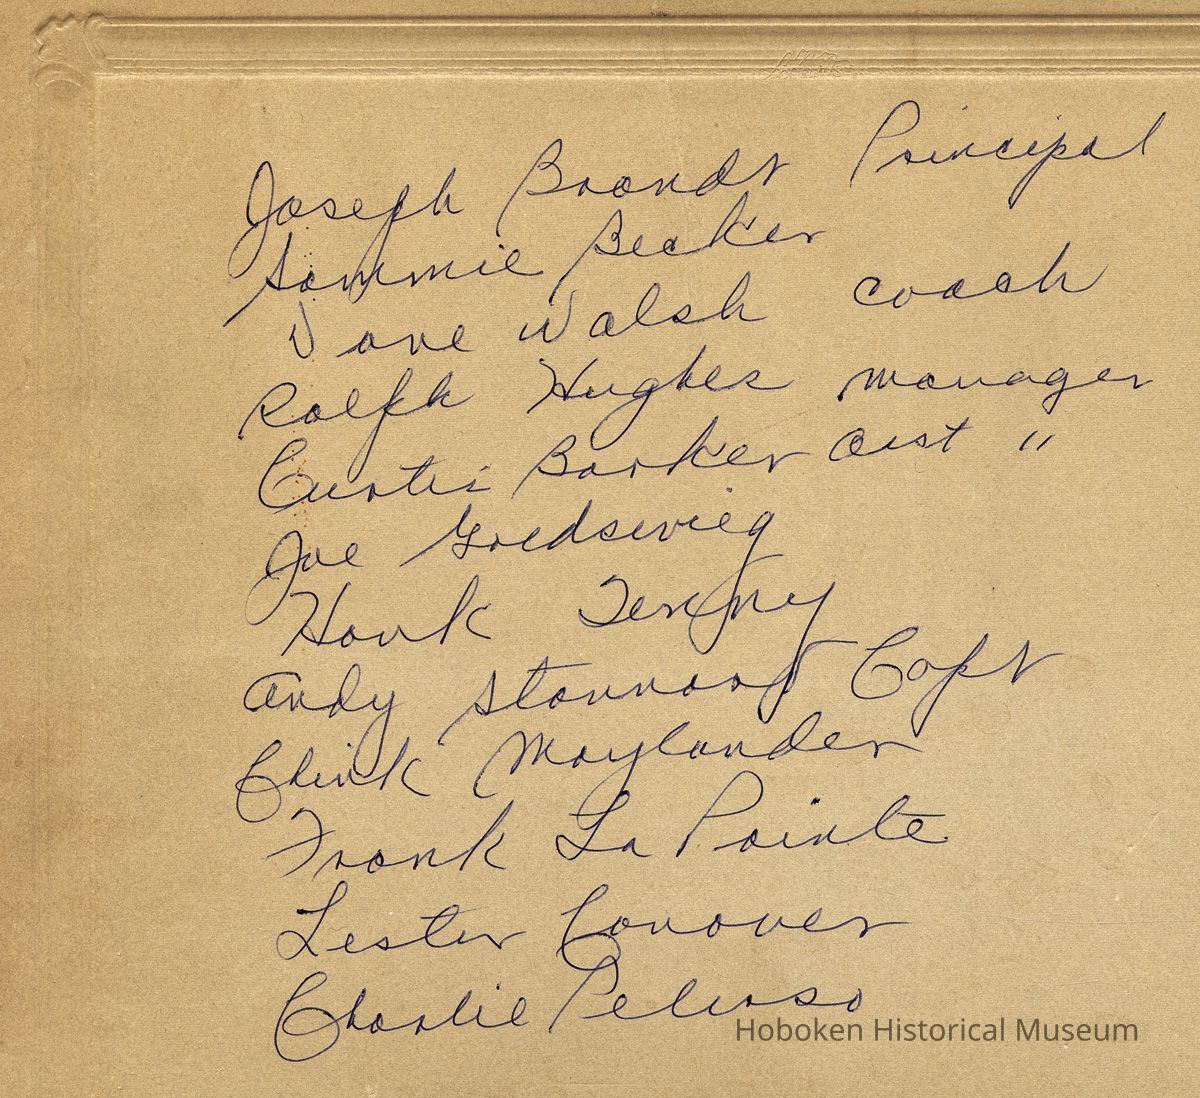 Joseph Brandt Principal
Sammie Becker
Dave Walsh coach
Ralph Hughes manager
Curtis Barker asst "
Joe Goldsevieg
Hank Tenny
Andy Stannard Capt
Chink Maylander
Frank La Pointe
Lester Conover
Charlie Peluso
Hoboken Historical Museum